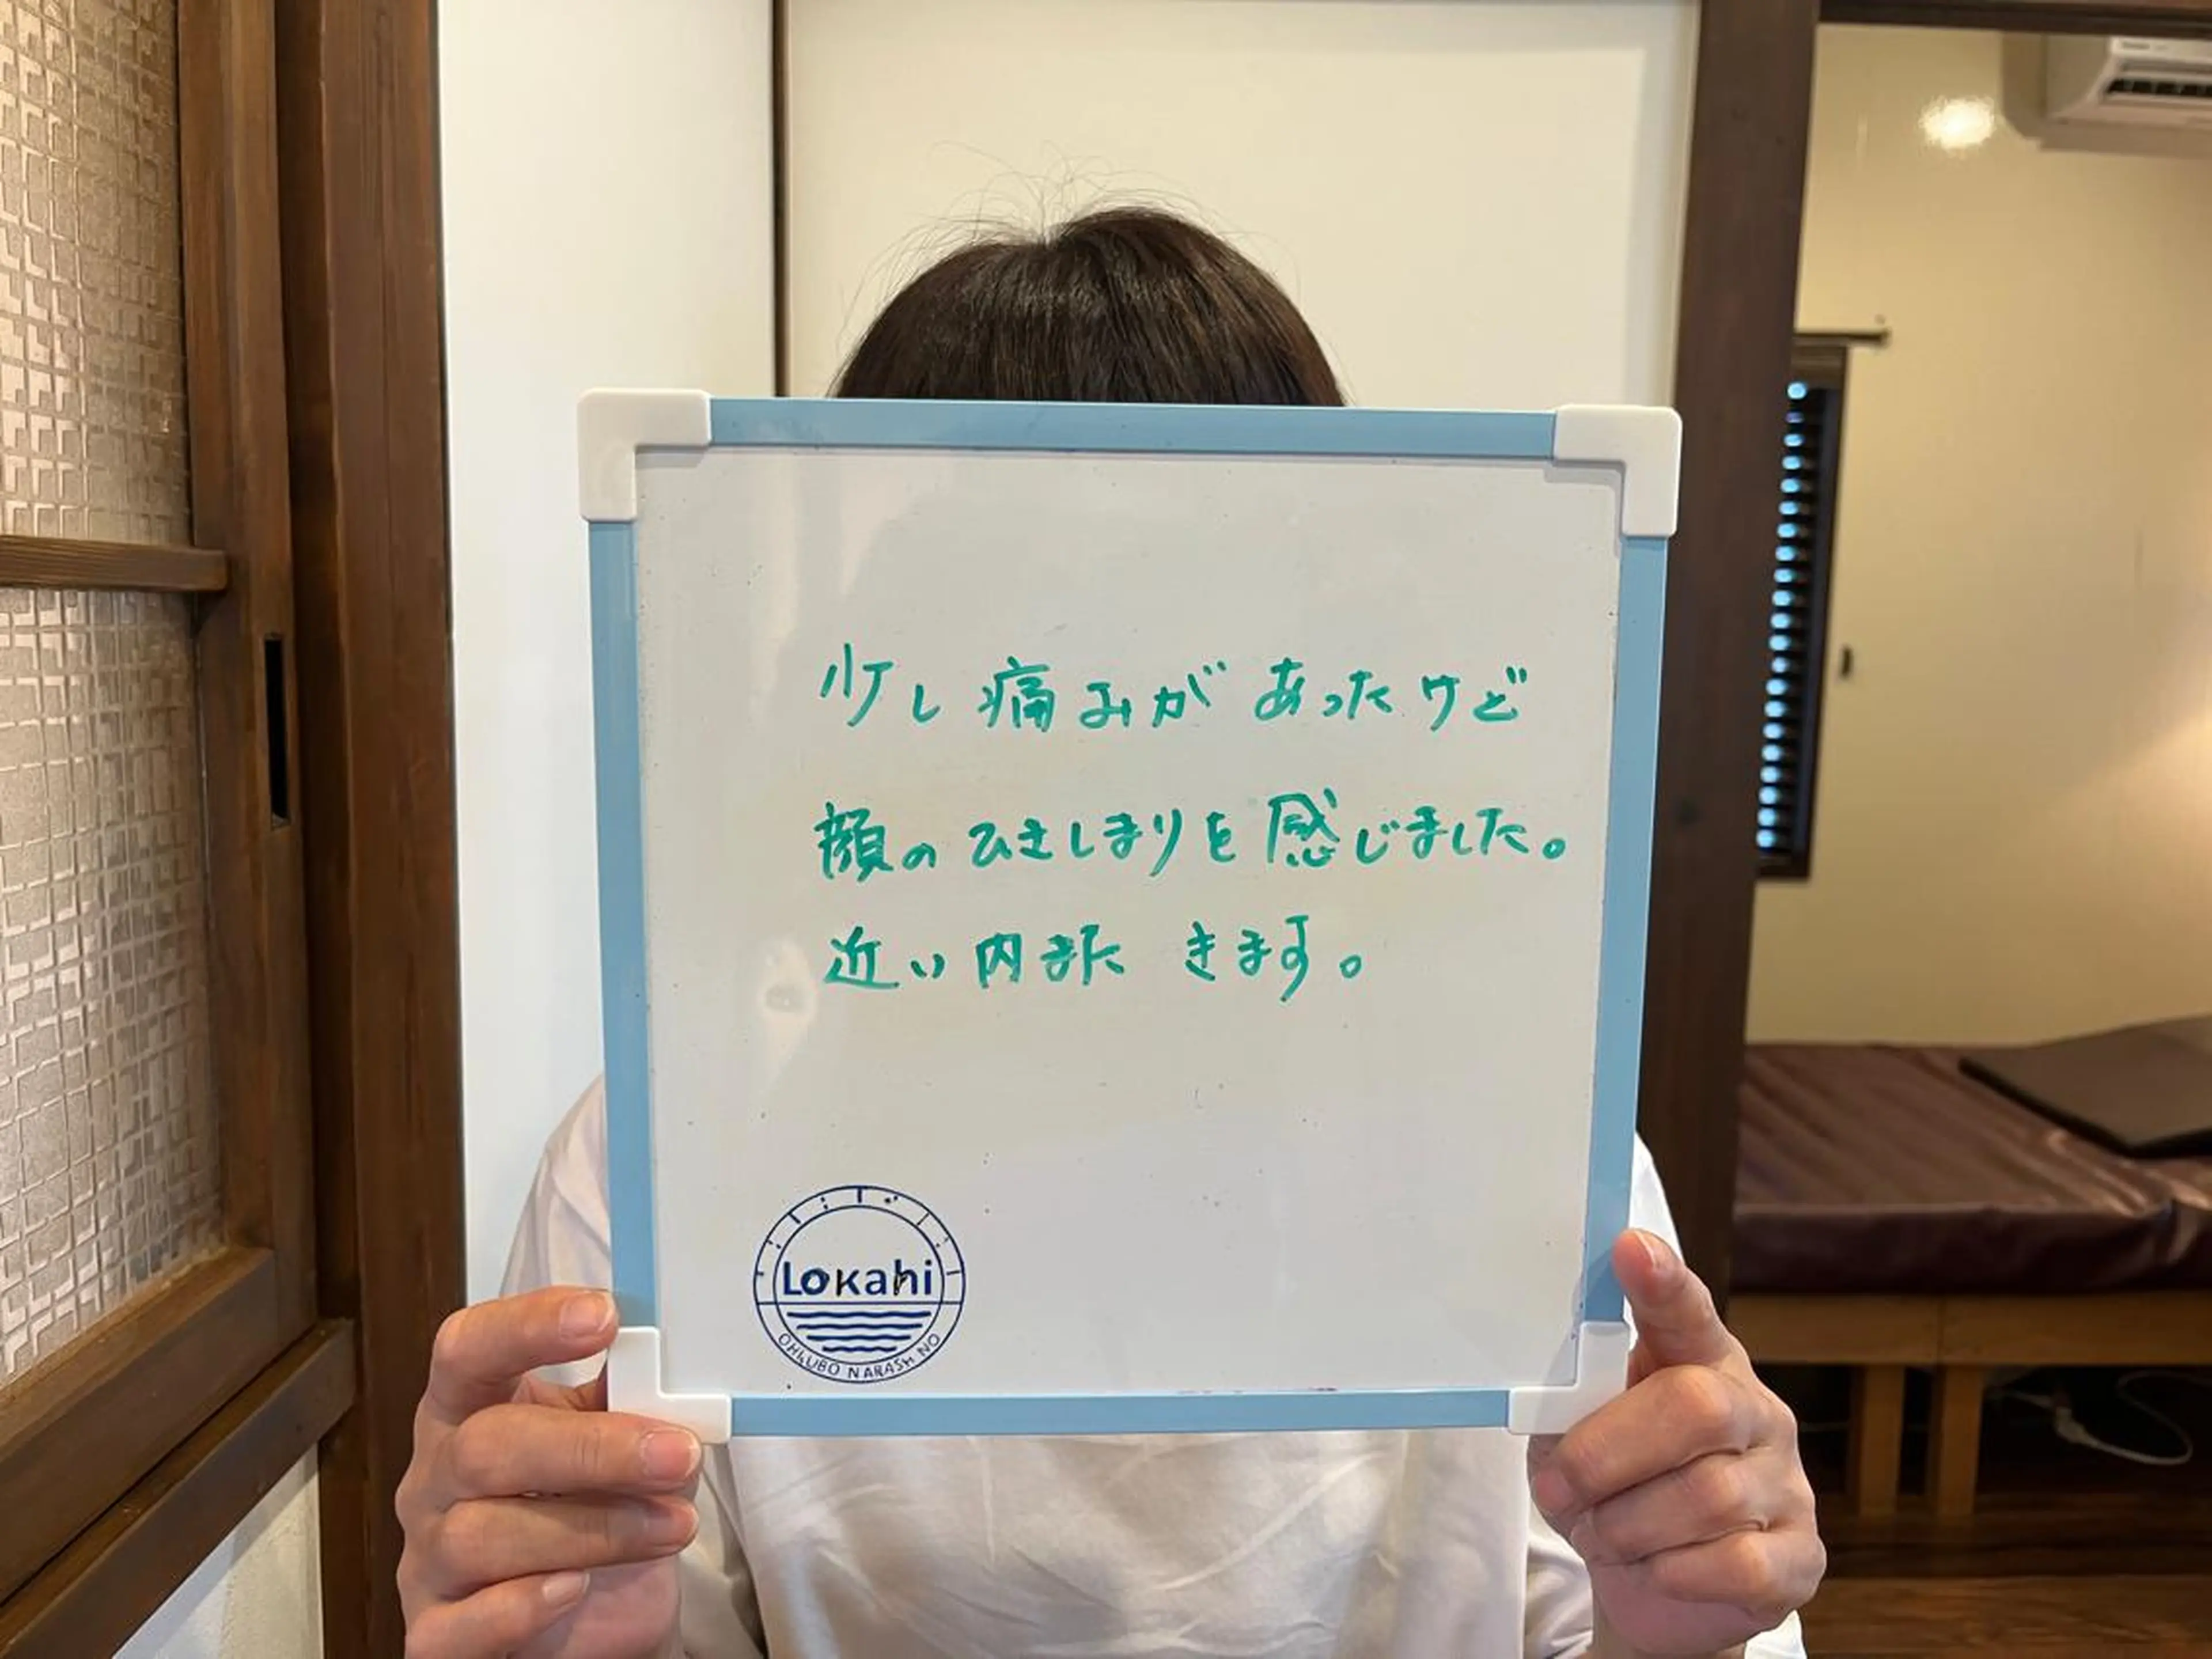 少し痛みがあったけど
顔のひきしまりを感じました。
近い内また きます。
Lokahi
OHKUBO NARASHINO